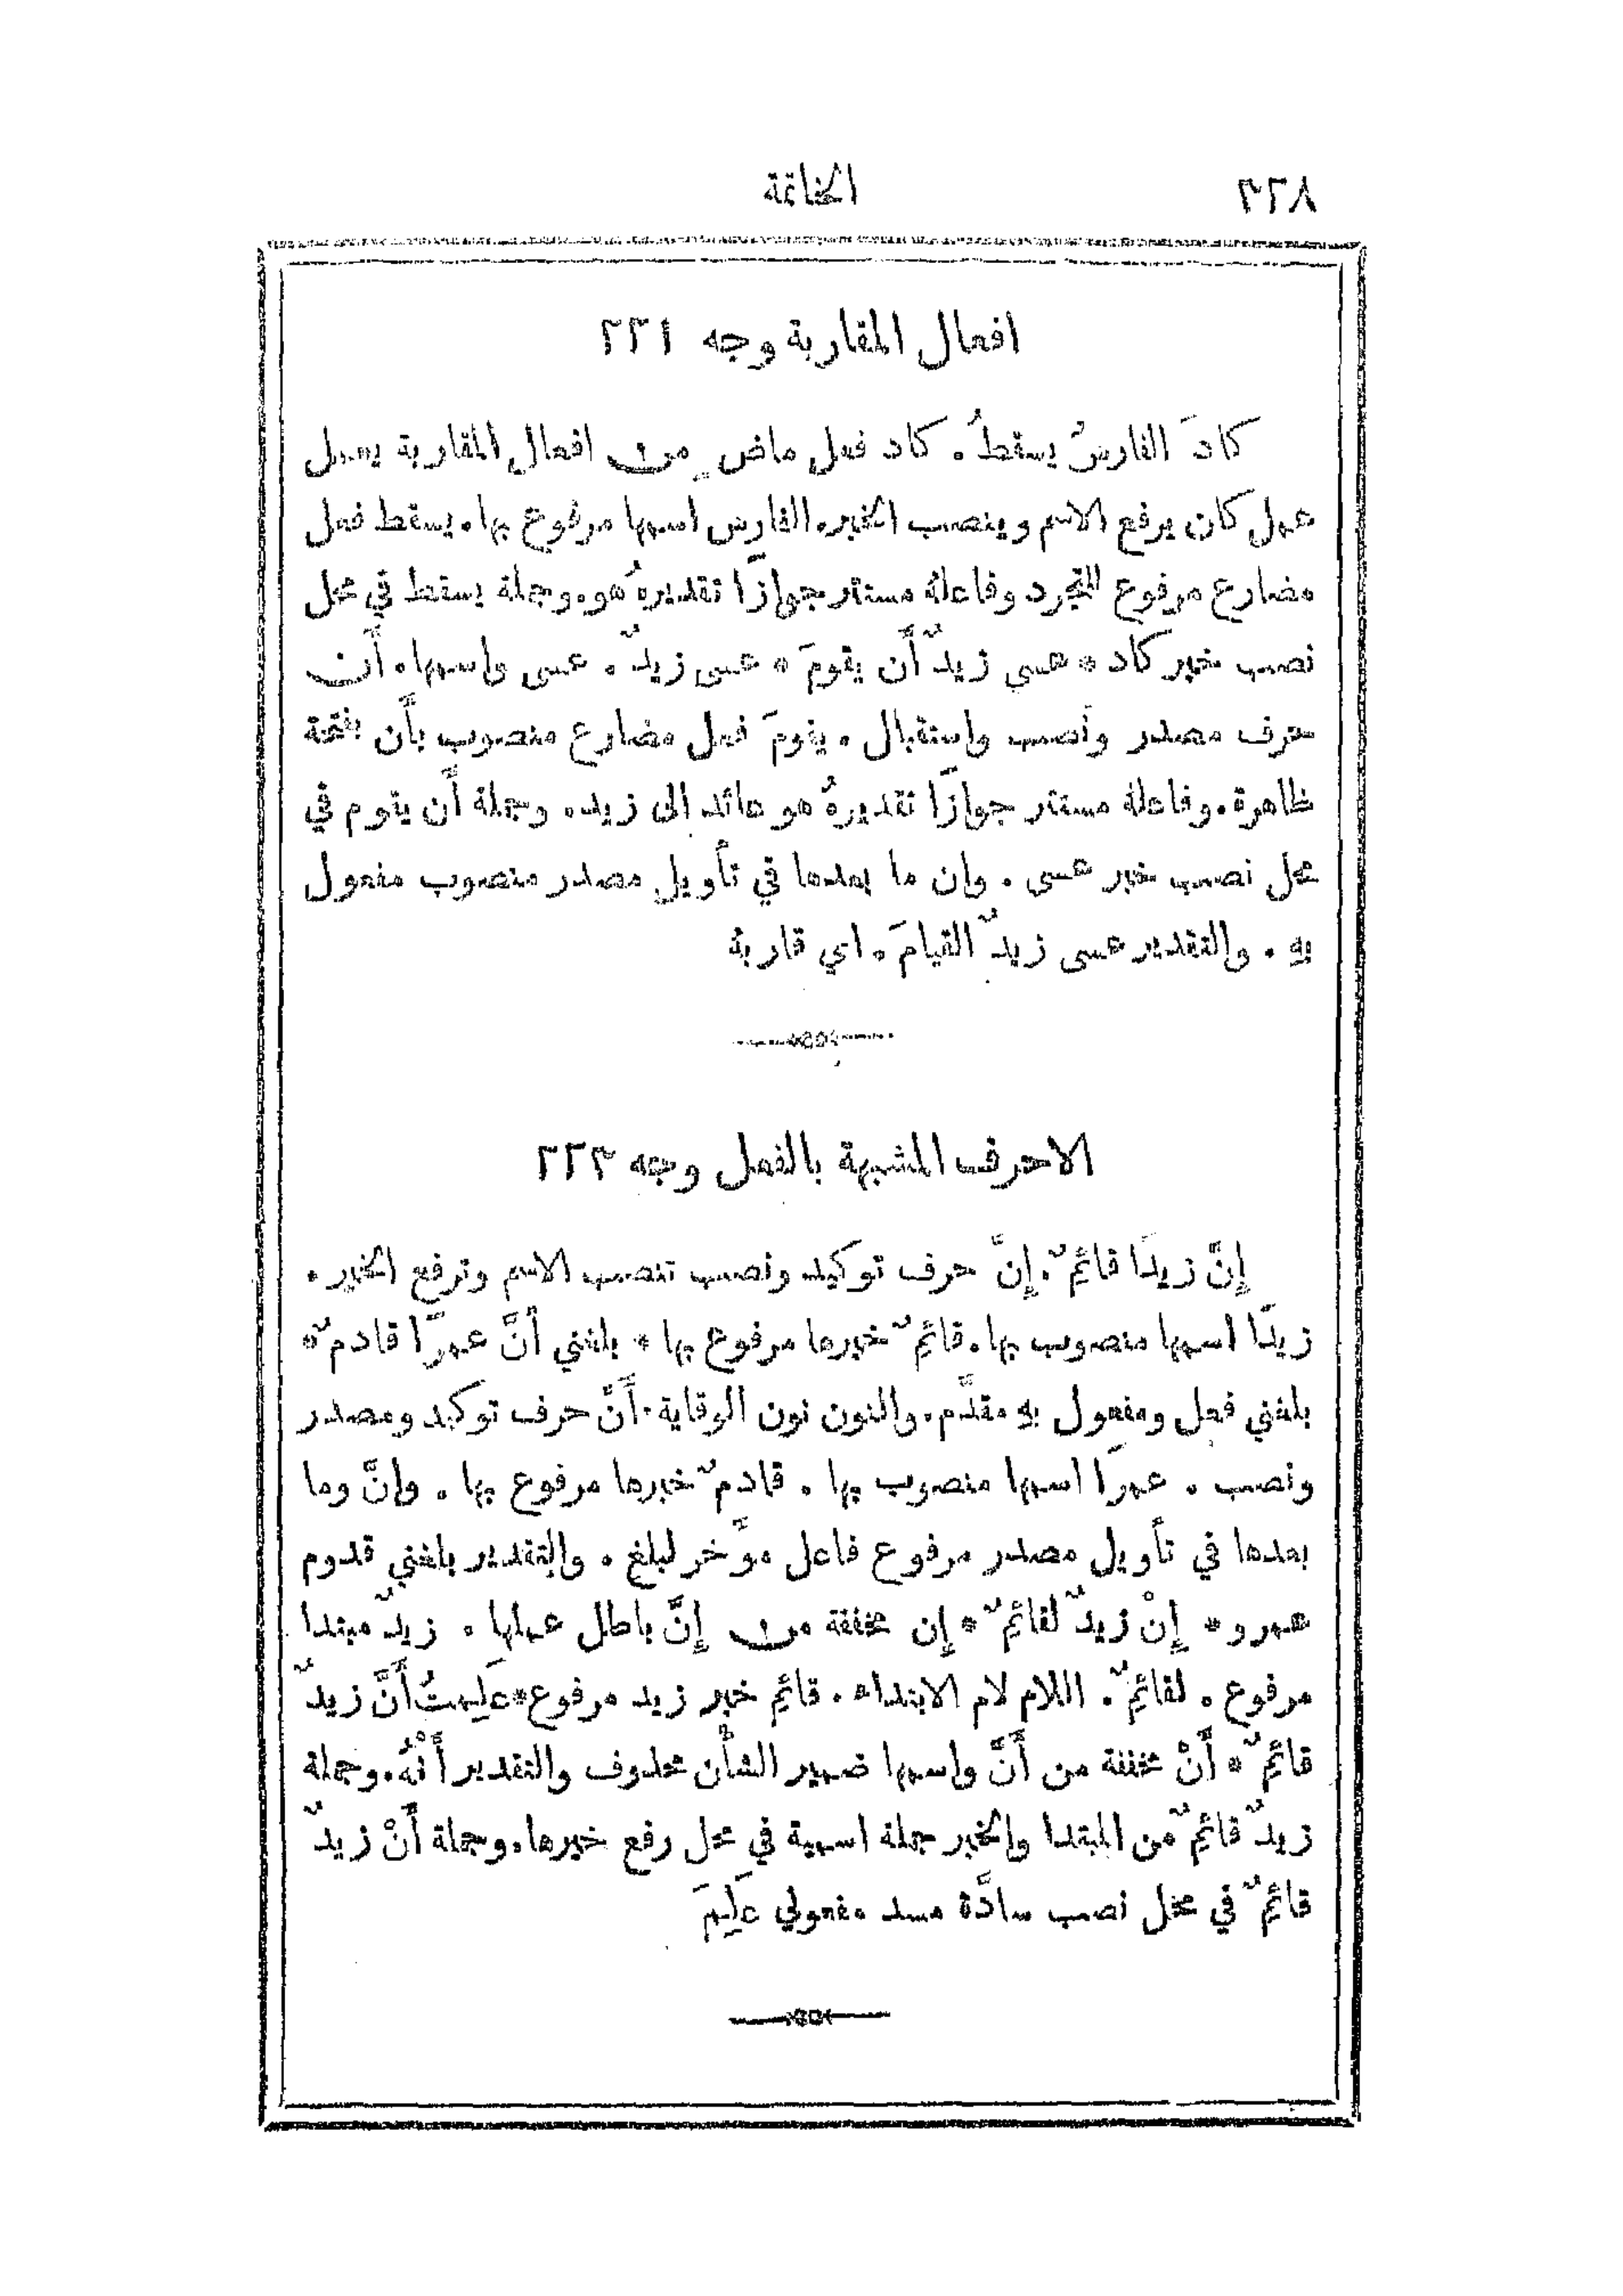 ٣٢٨
الخاتمة
افعال المقاربة وجه ٢٢١
كادَ الفارسُ يسقطُ. كاد فعل ماضٍ من افعال المقاربة يعمل
عمل كان يرفع الاسم وينصب الخبر. الفارس اسمها مرفوع بها. يسقط فعل
مضارع مرفوع للتجرد وفاعلهُ مستتر جوازًا تقديرهُ هو. وجملة يسقط في محل
نصب خبر كاد * عسى زيدٌ أَن يقومَ * عسى زيدٌ. عسى واسمها. أَن
حرف مصدر ونصب واستقبال. يقومَ فعل مضارع منصوب بأَن بفتحة
ظاهرة. وفاعلهُ مستتر جوازًا تقديرهُ هو عائد الى زيد. وجملة أَن يقوم في
محل نصب خبر عسى. وان ما بعدها في تأويل مصدر منصوب مفعول
بهِ. والتقدير عسى زيدٌ القيامَ. اي قاربهُ
الاحرف المشبهة بالفعل وجه ٢٢٣
إِنَّ زيدًا قائمٌ. إِنَّ حرف توكيد ونصب تنصب الاسم وترفع الخبر.
زيدًا اسمها منصوب بها. قائمٌ خبرها مرفوع بها * بلغني أَنَّ عمرًا قادمٌ *
بلغني فعل ومفعول بهِ مقدَّم. والنون نون الوقاية. أَنَّ حرف توكيد ومصدر
ونصب. عمرًا اسمها منصوب بها. قادمٌ خبرها مرفوع بها. وانَّ وما
بعدها في تأويل مصدر مرفوع فاعل مؤَخر لبلغ. والتقدير بلغني قدوم
عمرو * إِنْ زيدٌ لقائمٌ * إِن مخففة من إِنَّ باطل عملها. زيدٌ مبتدا
مرفوع. لقائمٌ. اللام لام الابتداء. قائم خبر زيد مرفوع * علِمتُ أَنْ زيدٌ
قائمٌ * أَنْ مخففة من أَنَّ واسمها ضمير الشأن محذوف والتقدير أَنَّهُ. وجملة
زيدٌ قائمٌ من المبتدا والخبر جملة اسمية في محل رفع خبرها. وجملة أَنْ زيدٌ
قائمٌ في محل نصب سادَّة مسد مفعولي عَلِمَ